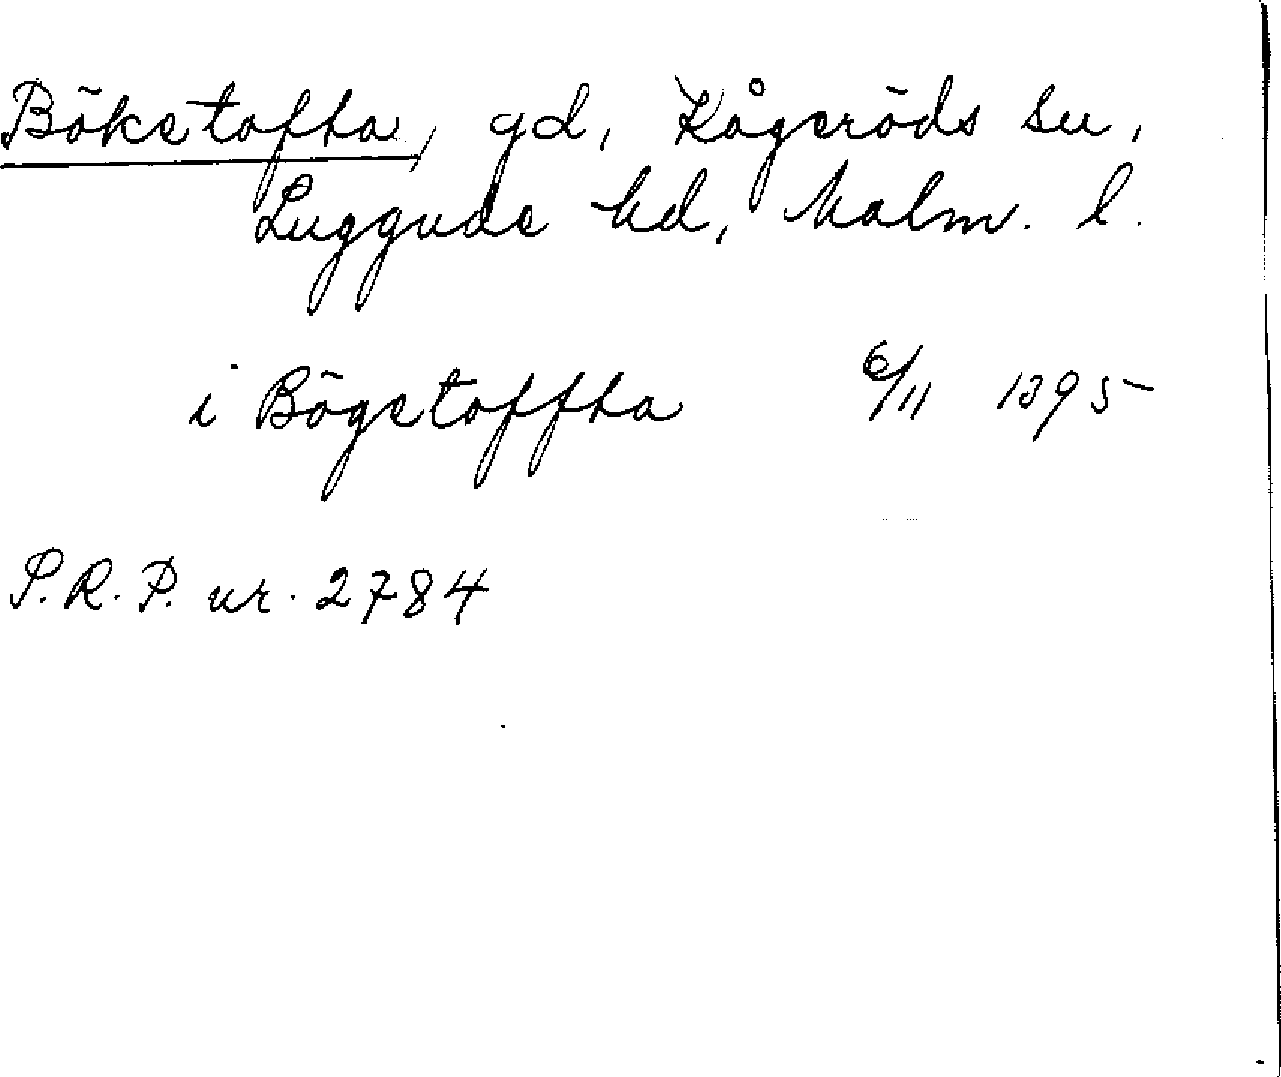 Böketofta, gd, Kågeröds sn,
Luggude hd, Malm. l.
i Bögetoffta 6/11 1395
S.R.P. nr. 2784